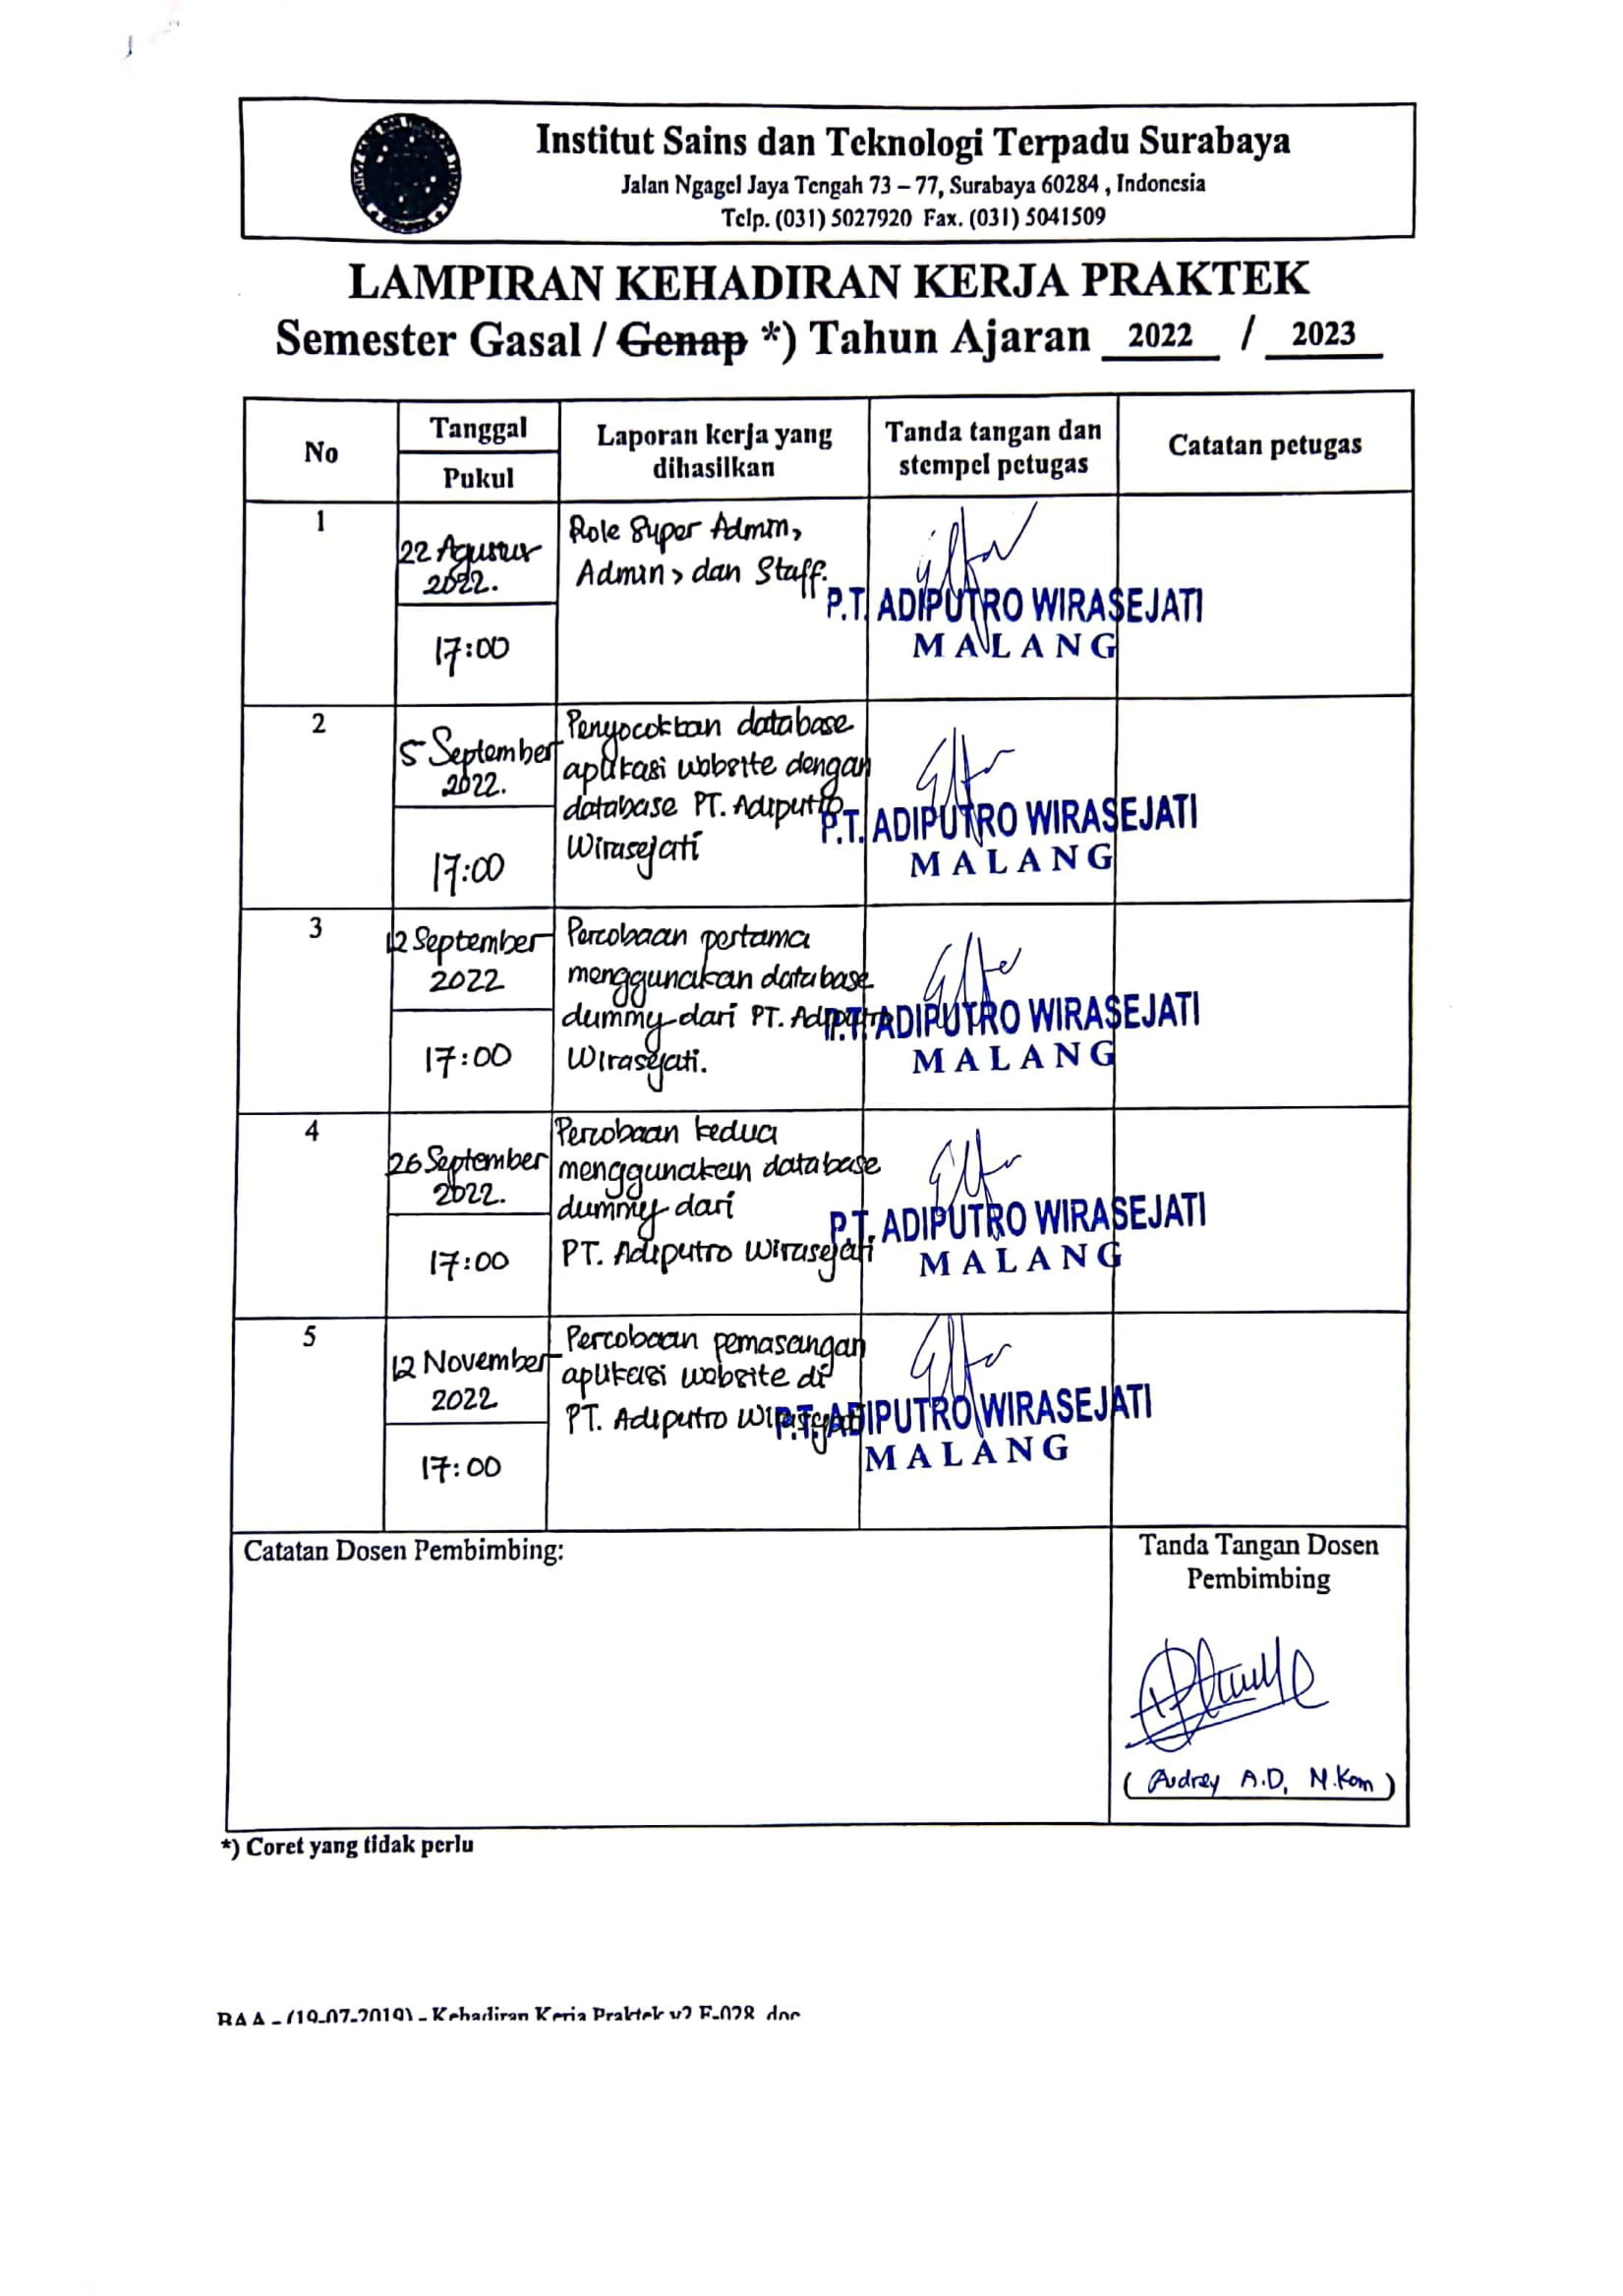 Institut Sains dan Teknologi Terpadu Surabaya
Jalan Ngagel Jaya Tengah 73 – 77, Surabaya 60284 , Indonesia
Telp. (031) 5027920 Fax. (031) 5041509
LAMPIRAN KEHADIRAN KERJA PRAKTEK
Semester Gasal / Genap *) Tahun Ajaran 2022 / 2023
No
Tanggal
Pukul
Laporan kerja yang
dihasilkan
Tanda tangan dan
stempel petugas
Catatan petugas
1
22 Agustus
2022.
17:00
Role Super Admin,
Admin, dan Staff.
P.T. ADIPUTRO WIRASEJATI
MALANG
2
5 September
2022.
17:00
Penyocokkan database
aplikasi website dengan
database PT. Adiputro
Wirasejati
P.T. ADIPUTRO WIRASEJATI
MALANG
3
12 September
2022
17:00
Percobaan pertama
menggunakan database
dummy dari PT. Adiputro
Wirasejati.
P.T. ADIPUTRO WIRASEJATI
MALANG
4
26 September
2022.
17:00
Percobaan kedua
menggunakan database
dummy dari
PT. Adiputro Wirasejati
P.T. ADIPUTRO WIRASEJATI
MALANG
5
12 November
2022
17:00
Percobaan pemasangan
aplikasi website di
PT. Adiputro Wirasejati
P.T. ADIPUTRO WIRASEJATI
MALANG
Catatan Dosen Pembimbing:
Tanda Tangan Dosen
Pembimbing
( Audrey A.D, M.Kom )
*) Coret yang tidak perlu
BAA - (19-07-2019) - Kehadiran Kerja Praktek v2 F-028 .doc